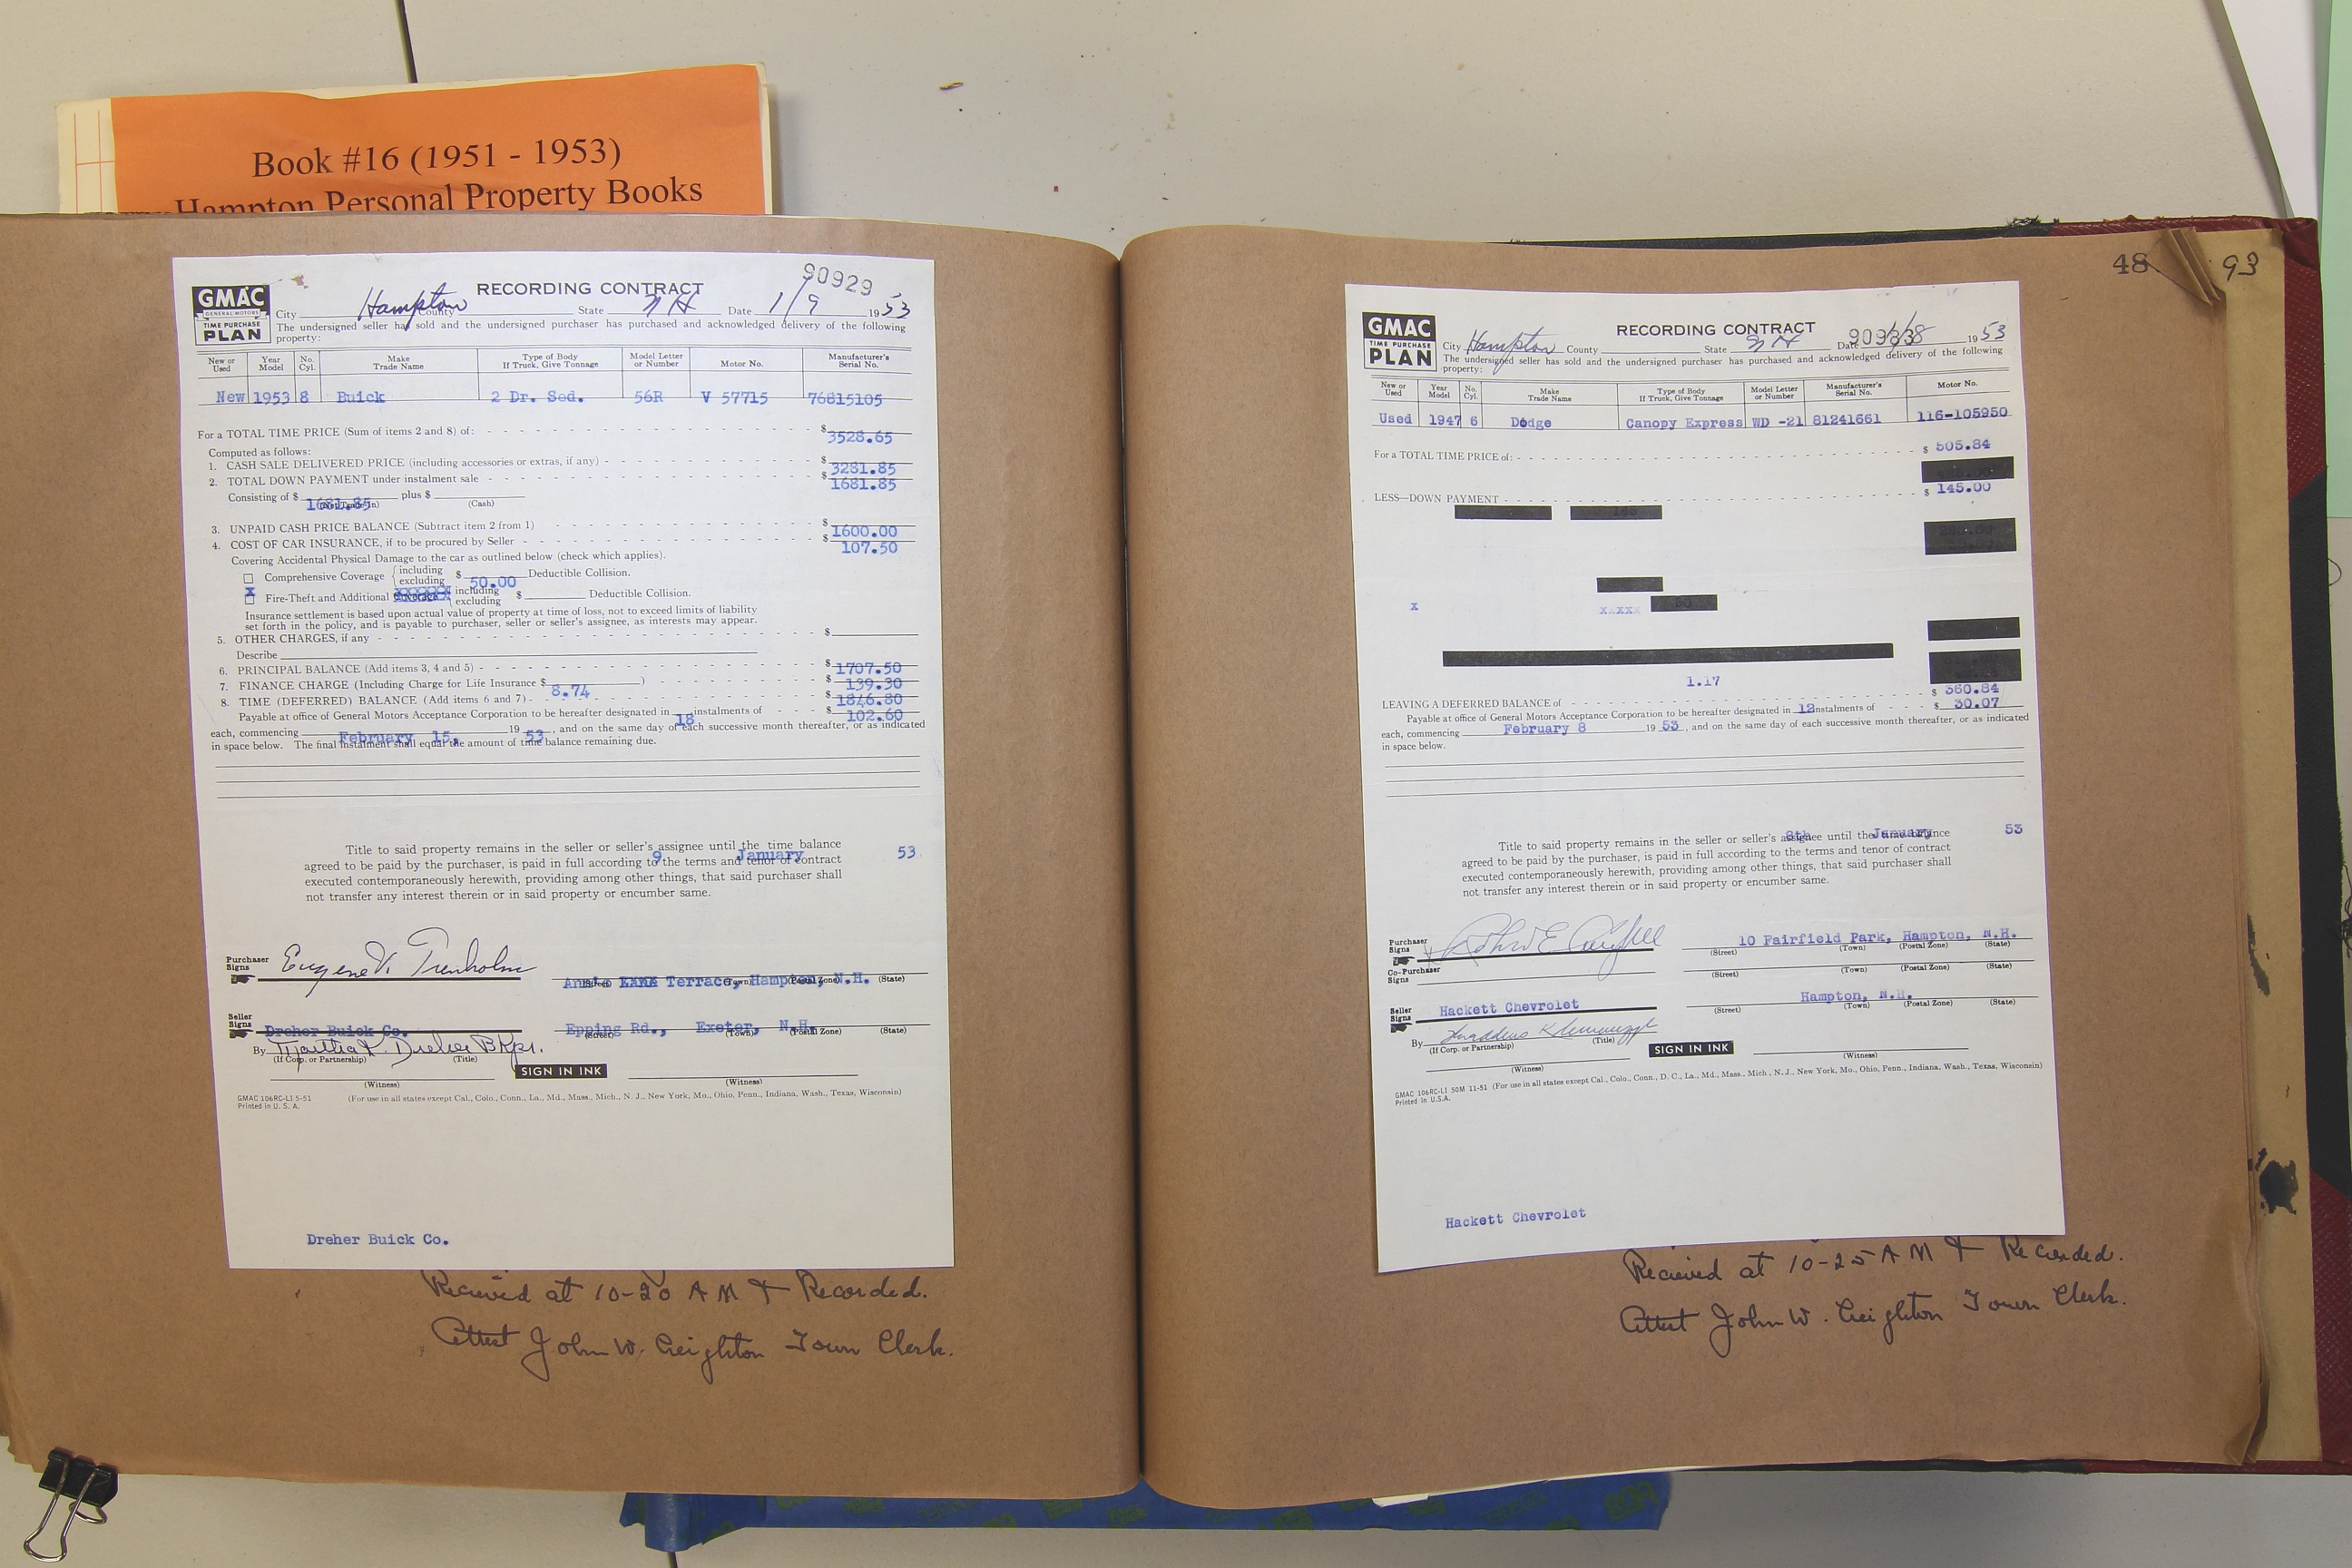 Book #16 (1951 - 1953)
Hampton Personal Property Books
GMAC
GENERAL MOTORS
TIME PURCHASE
PLAN
RECORDING CONTRACT
90929
City Hampton County State N H Date 1/9 1953
The undersigned seller has sold and the undersigned purchaser has purchased and acknowledged delivery of the following
property:
New or Used Year Model No. Cyl. Make Trade Name Type of Body If Truck, Give Tonnage Model Letter or Number Motor No. Manufacturer's Serial No.
New 1953 8 Buick 2 Dr. Sed. 56R V 57715 76815105
For a TOTAL TIME PRICE (Sum of items 2 and 8) of: $ 3528.65
Computed as follows:
1. CASH SALE DELIVERED PRICE (including accessories or extras, if any) $ 3281.85
2. TOTAL DOWN PAYMENT under instalment sale $ 1681.85
Consisting of $ 1681.85 plus $
(Net Trade-in) (Cash)
3. UNPAID CASH PRICE BALANCE (Subtract item 2 from 1) $ 1600.00
4. COST OF CAR INSURANCE, if to be procured by Seller $ 107.50
Covering Accidental Physical Damage to the car as outlined below (check which applies).
Comprehensive Coverage including excluding $ 50.00 Deductible Collision.
X Fire-Theft and Additional Coverage XXXXXX including excluding $ Deductible Collision.
Insurance settlement is based upon actual value of property at time of loss, not to exceed limits of liability
set forth in the policy, and is payable to purchaser, seller or seller's assignee, as interests may appear.
5. OTHER CHARGES, if any $
Describe
6. PRINCIPAL BALANCE (Add items 3, 4 and 5) $ 1707.50
7. FINANCE CHARGE (Including Charge for Life Insurance $ 8.74 ) $ 139.30
8. TIME (DEFERRED) BALANCE (Add items 6 and 7) $ 1846.80
Payable at office of General Motors Acceptance Corporation to be hereafter designated in 18 instalments of $ 102.60
each, commencing February 15, 1953, and on the same day of each successive month thereafter, or as indicated
in space below. The final instalment shall equal the amount of time balance remaining due.
Title to said property remains in the seller or seller's assignee until the time balance
agreed to be paid by the purchaser, is paid in full according to the terms and tenor of contract
9 January 53
executed contemporaneously herewith, providing among other things, that said purchaser shall
not transfer any interest therein or in said property or encumber same.
Purchaser Signs Eugene V. Trenholm Terrace, Hampton, N.H.
(Street) (Town) (Postal Zone) (State)
Seller Signs Dreher Buick Co. Epping Rd., Exeter, N.H.
(Street) (Town) (Postal Zone) (State)
By Martha L. Dreher Bkpr.
(If Corp. or Partnership) (Title)
SIGN IN INK
(Witness) (Witness)
GMAC 106RC-LI 5-51
Printed in U. S. A.
(For use in all states except Cal., Colo., Conn., La., Md., Mass., Mich., N. J., New York, Mo., Ohio, Penn., Indiana, Wash., Texas, Wisconsin)
Dreher Buick Co.
Recieved at 10-20 A M & Recorded.
Attest John W. Creighton Town Clerk.
48
93
GMAC
TIME PURCHASE
PLAN
RECORDING CONTRACT
City Hampton County State N H Date 1/8 1953
The undersigned seller has sold and the undersigned purchaser has purchased and acknowledged delivery of the following
property:
New or Used Year Model No. Cyl. Make Trade Name Type of Body If Truck, Give Tonnage Model Letter or Number Manufacturer's Serial No. Motor No.
Used 1947 6 Dodge Canopy Express WD -21 81241661 116-105950
For a TOTAL TIME PRICE of: $ 505.84
LESS—DOWN PAYMENT $ 145.00
x xxxx
1.17
LEAVING A DEFERRED BALANCE of $ 360.84
Payable at office of General Motors Acceptance Corporation to be hereafter designated in 12 instalments of $ 30.07
each, commencing February 8 1953, and on the same day of each successive month thereafter, or as indicated
in space below.
8th January 53
Title to said property remains in the seller or seller's assignee until the time balance
agreed to be paid by the purchaser, is paid in full according to the terms and tenor of contract
executed contemporaneously herewith, providing among other things, that said purchaser shall
not transfer any interest therein or in said property or encumber same.
Purchaser Signs 10 Fairfield Park, Hampton, N.H.
(Street) (Town) (Postal Zone) (State)
Co-Purchaser Signs
(Street) (Town) (Postal Zone) (State)
Seller Signs Hackett Chevrolet Hampton, N.H.
(Street) (Town) (Postal Zone) (State)
By
(If Corp. or Partnership) (Title)
SIGN IN INK
(Witness) (Witness)
GMAC 106RC-LI 50M 11-51 (For use in all states except Cal., Colo., Conn., D. C., La., Md., Mass., Mich., N. J., New York, Mo., Ohio, Penn., Indiana, Wash., Texas, Wisconsin)
Printed in U.S.A.
Hackett Chevrolet
Recieved at 10-25 A M & Recorded.
Attest John W. Creighton Town Clerk.